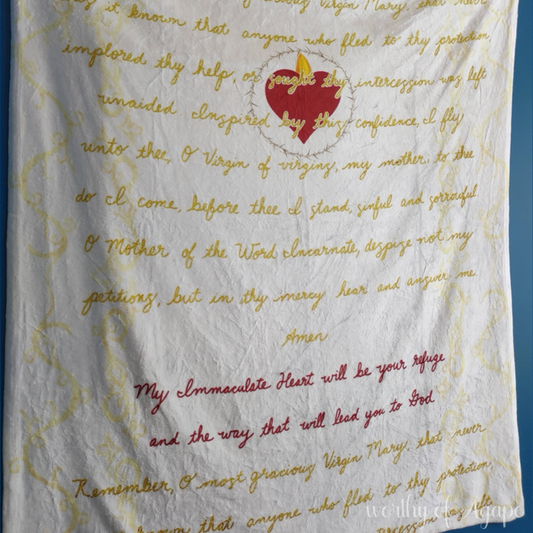 gracious Virgin Mary, that never
it known that anyone who fled to thy protection
implored thy help, or sought thy intercession was left
unaided Inspired by this confidence, I fly
unto thee, O Virgin of virgins, my mother; to thee
do I come, before thee I stand, sinful and sorrowful.
O Mother of the Word Incarnate, despise not my
petitions, but in thy mercy hear and answer me.
Amen
My Immaculate Heart will be your refuge
and the way that will lead you to God
Remember, O most gracious Virgin Mary, that never
known that anyone who fled to thy protection,
intercession was left
worthy of Agape